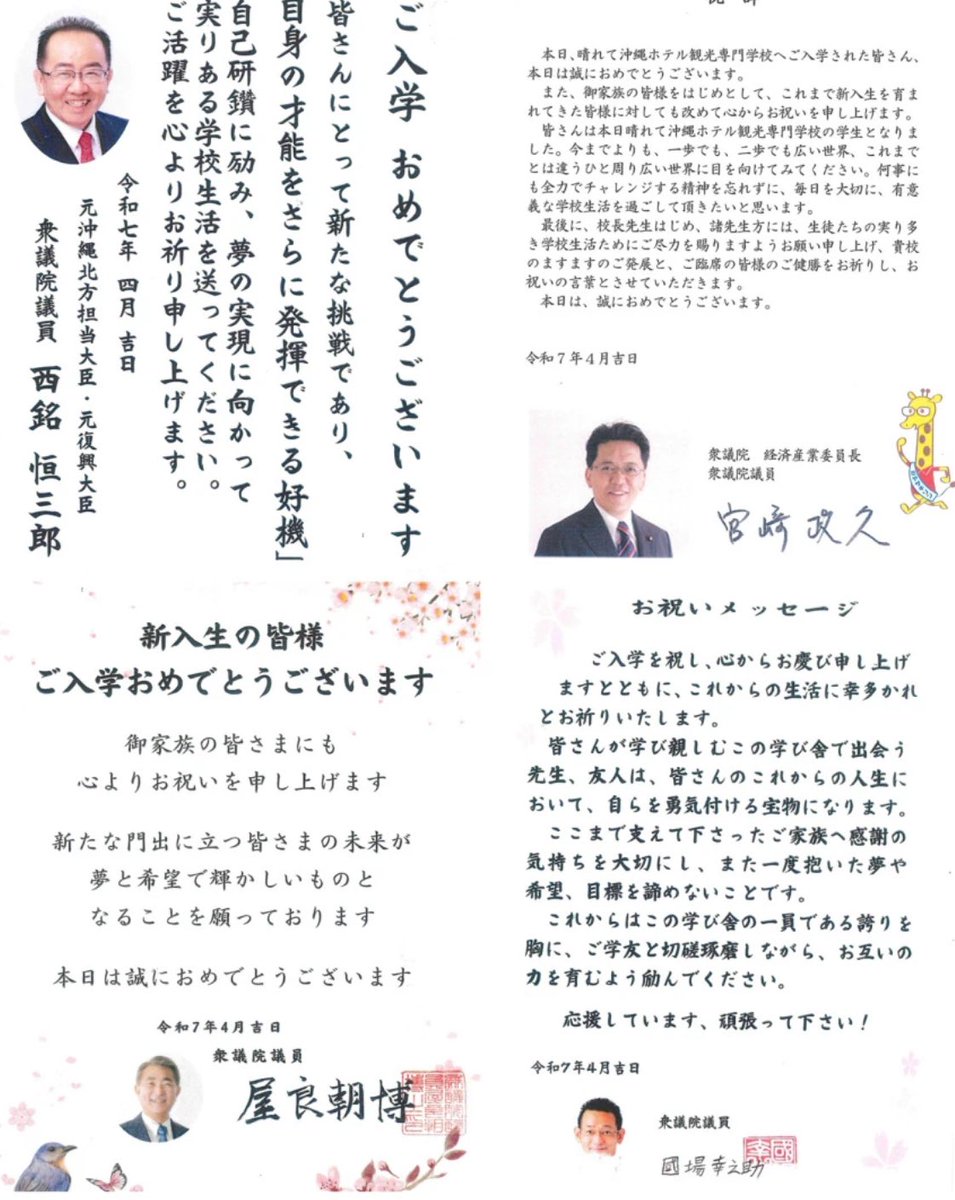 ご入学 おめでとうございます
皆さんにとって新たな挑戦であり、
自身の才能をさらに発揮できる好機」
自己研鑽に励み、夢の実現に向かって
実りある学校生活を送ってください。
ご活躍を心よりお祈り申し上げます。
令和七年 四月 吉日
元沖縄北方担当大臣・元復興大臣
衆議院議員 西銘 恒三郎
本日、晴れて沖縄ホテル観光専門学校へご入学された皆さん、
本日は誠におめでとうございます。
また、御家族の皆様をはじめとして、これまで新入生を育ま
れてきた皆様に対しても改めて心からお祝いを申し上げます。
皆さんは本日晴れて沖縄ホテル観光専門学校の学生となりま
した。今までよりも、一歩でも、二歩でも広い世界、これまで
とは違うひと周り広い世界に目を向けてみてください。何事に
も全力でチャレンジする精神を忘れずに、毎日を大切に、有意
義な学校生活を過ごして頂きたいと思います。
最後に、校長先生はじめ、諸先生方には、生徒たちの実り多
き学校生活ためにご尽力を賜りますようお願い申し上げ、貴校
のますますのご発展と、ご臨席の皆様のご健勝をお祈りし、お
祝いの言葉とさせていただきます。
本日は、誠におめでとうございます。
令和７年４月吉日
衆議院 経済産業委員長
衆議院議員
宮﨑政久
新入生の皆様
ご入学おめでとうございます
御家族の皆さまにも
心よりお祝いを申し上げます
新たな門出に立つ皆さまの未来が
夢と希望で輝かしいものと
なることを願っております
本日は誠におめでとうございます
令和7年4月吉日
衆議院議員
屋良朝博
お祝いメッセージ
ご入学を祝し、心からお慶び申し上げ
ますとともに、これからの生活に幸多かれ
とお祈りいたします。
皆さんが学び親しむこの学び舎で出会う
先生、友人は、皆さんのこれからの人生に
おいて、自らを勇気付ける宝物になります。
ここまで支えて下さったご家族へ感謝の
気持ちを大切にし、また一度抱いた夢や
希望、目標を諦めないことです。
これからはこの学び舎の一員である誇りを
胸に、ご学友と切磋琢磨しながら、お互いの
力を育むよう励んでください。
応援しています、頑張って下さい！
令和7年4月吉日
衆議院議員
國場幸之助